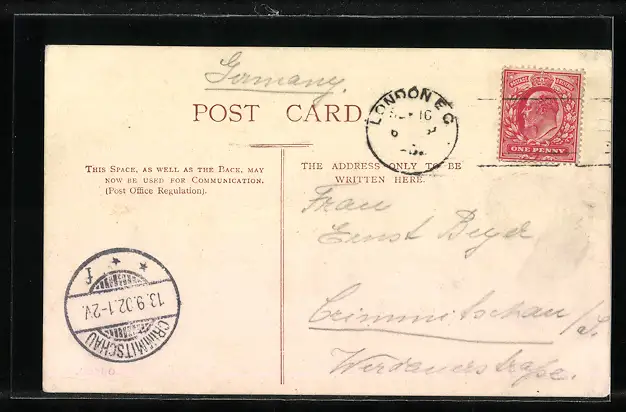 Germany.
POST CARD.
LONDON E.C
6
THIS SPACE, AS WELL AS THE BACK, MAY
NOW BE USED FOR COMMUNICATION.
(Post Office Regulation).
THE ADDRESS ONLY TO BE
WRITTEN HERE.
POSTAGE REVENUE
ONE PENNY
Frau
Ernst Beyer
Crimmitschau /S.
Werdauerstraße.
CRIMMITSCHAU
13.9.02.1-2V.